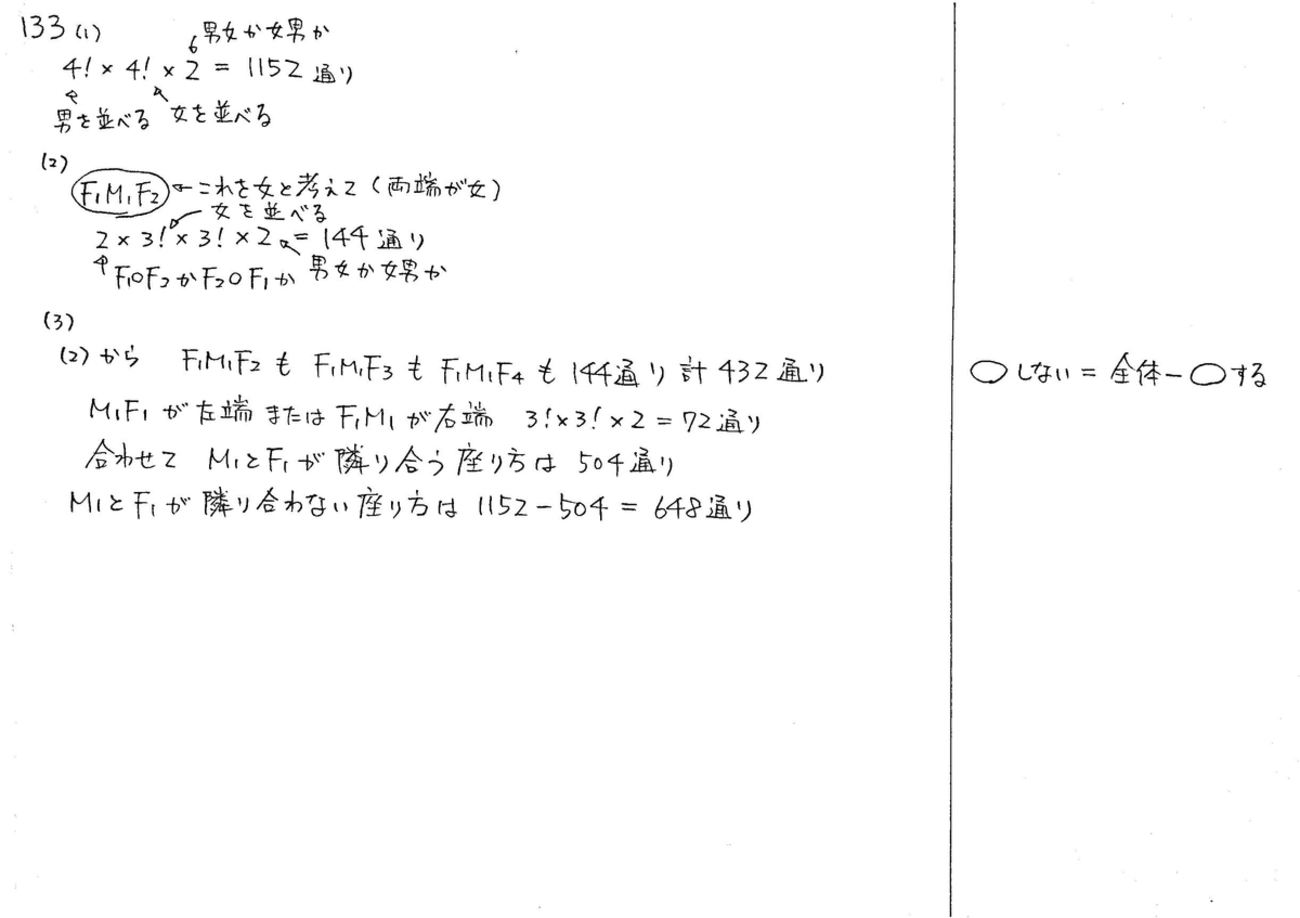 133 (1)
男女か女男か
4! × 4! × 2 = 1152 通り
男を並べる 女を並べる
(2)
F₁M₁F₂ ← これを女と考えて (両端が女)
女を並べる
2 × 3! × 3! × 2 = 144 通り
F₁○F₂かF₂○F₁か 男女か女男か
(3)
(2)から F₁M₁F₂も F₁M₁F₃も F₁M₁F₄も 144通り 計 432 通り
○しない = 全体 − ○する
M₁F₁が左端 または F₁M₁が右端 3! × 3! × 2 = 72通り
合わせて M₁とF₁が隣り合う座り方は 504通り
M₁とF₁が隣り合わない座り方は 1152 − 504 = 648通り